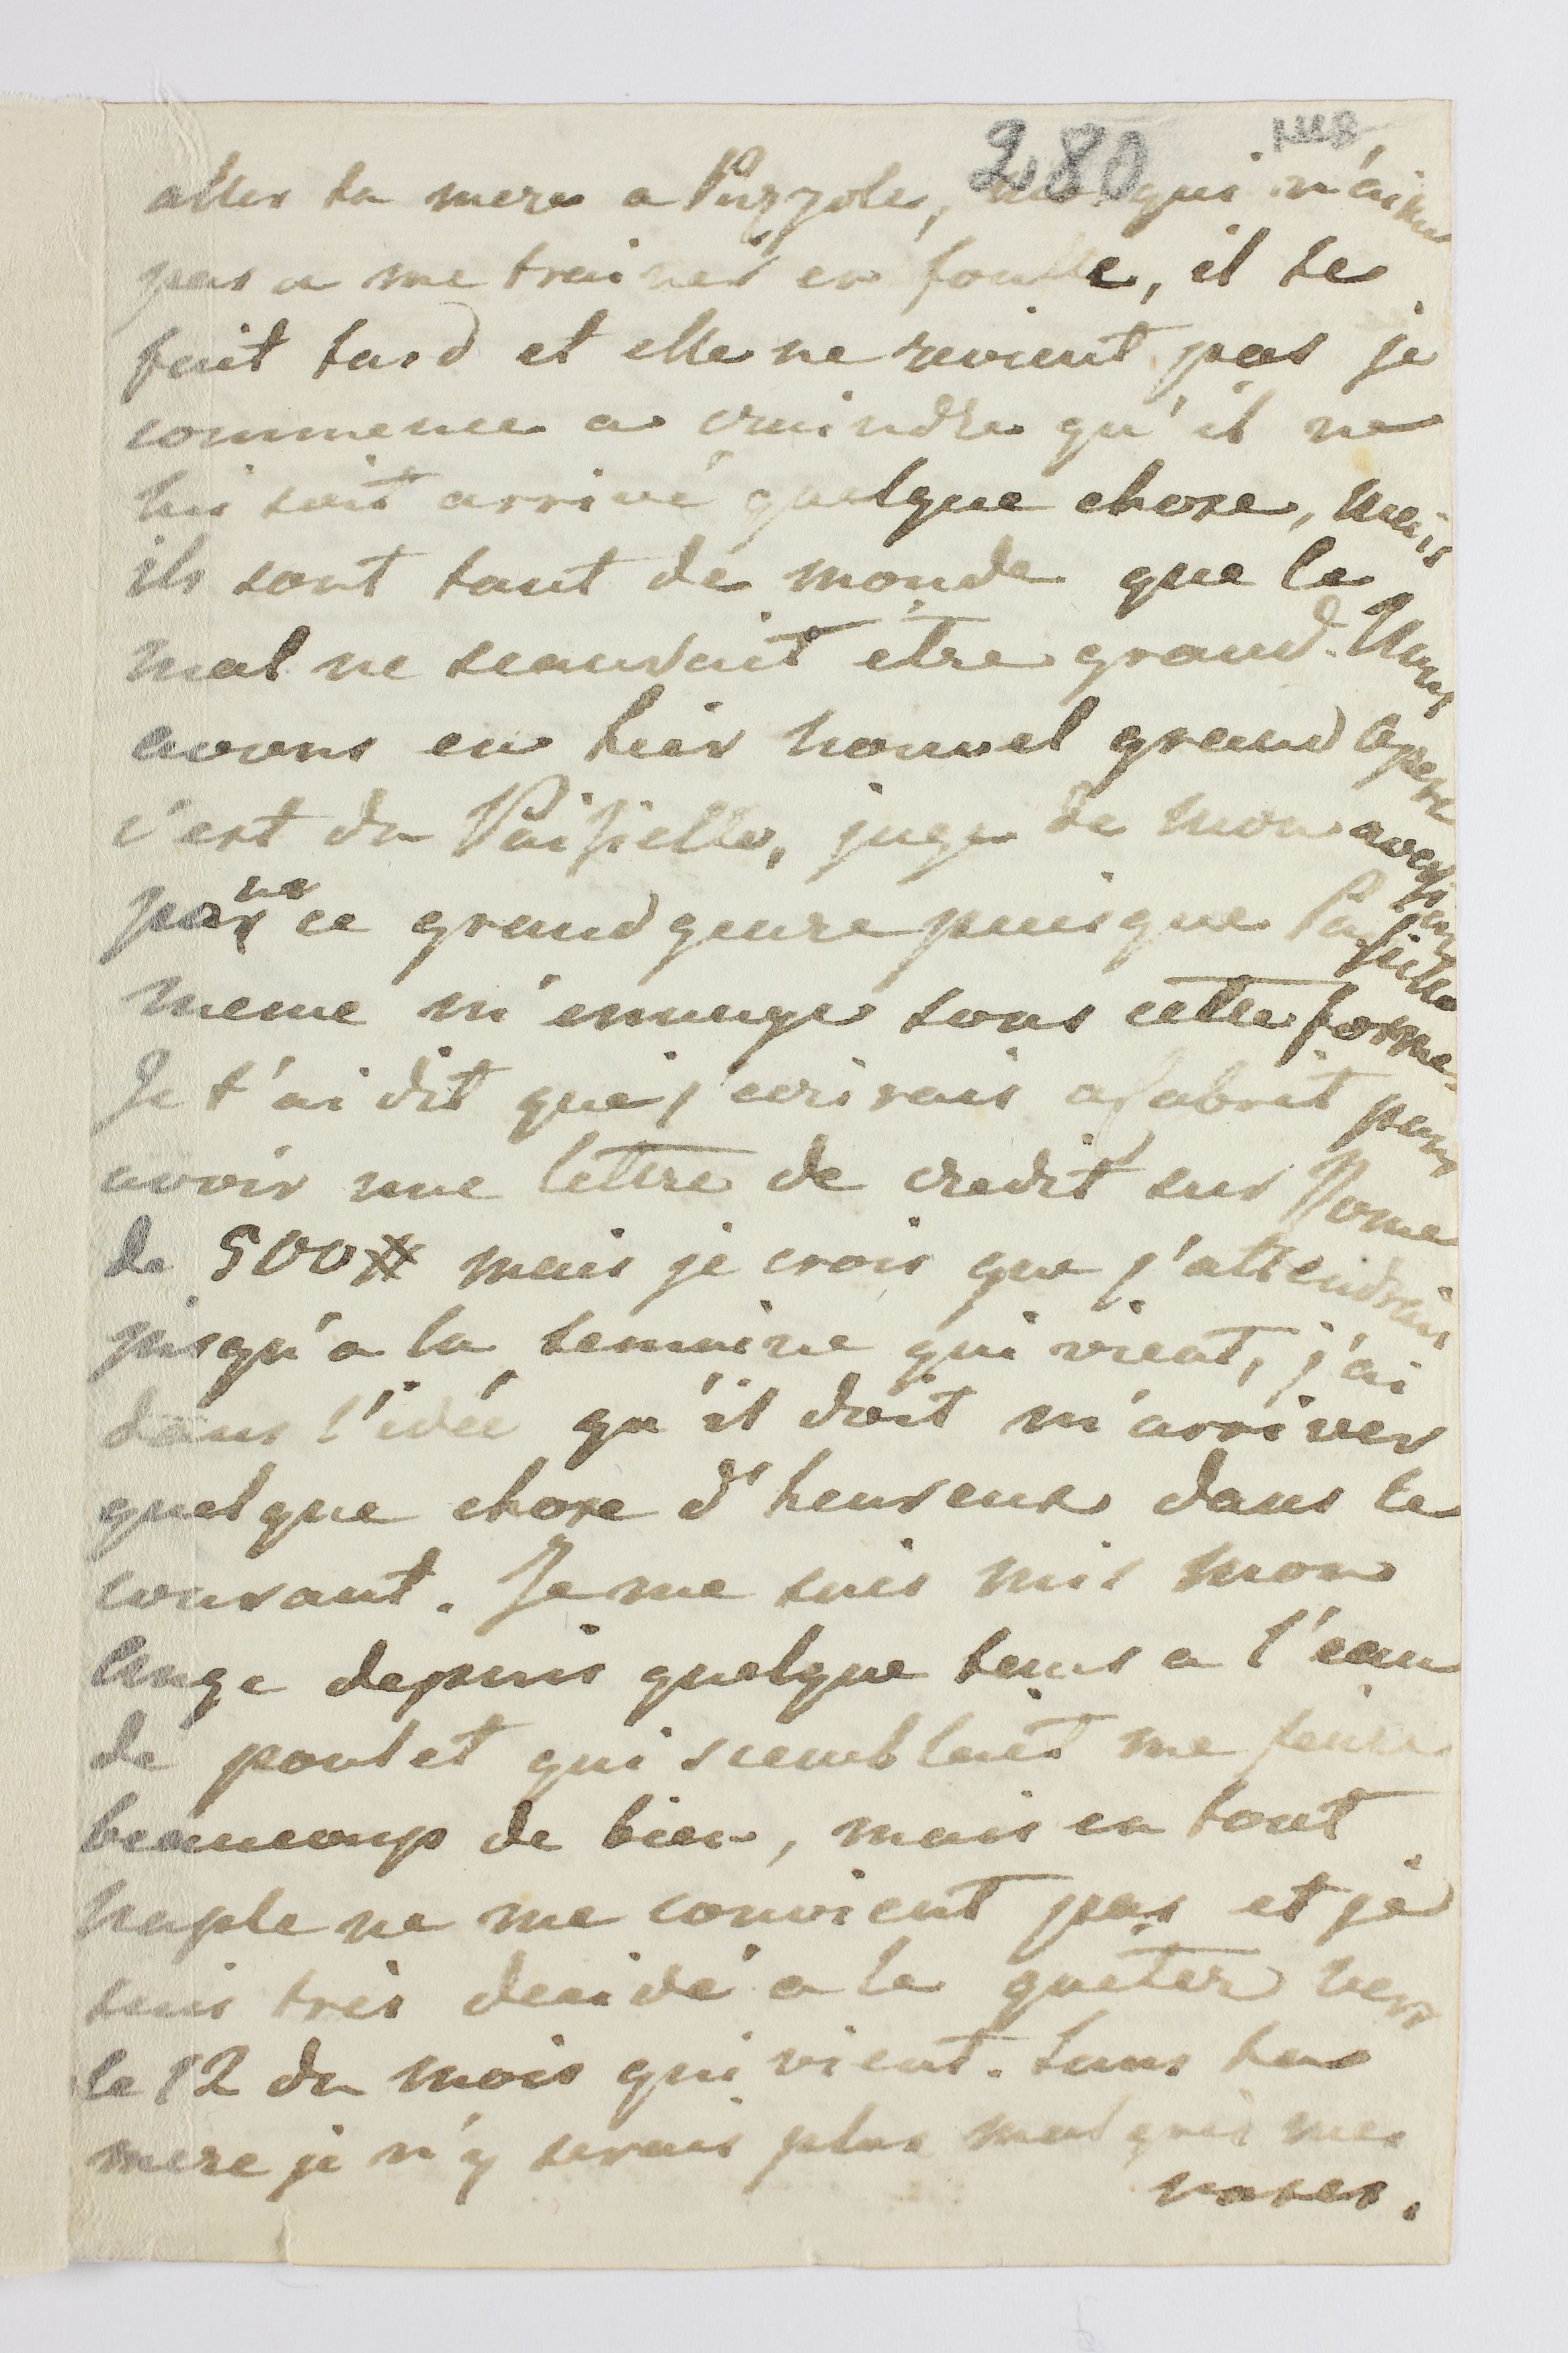 280
aller ta mere a Puzzole, moi qui n'aime
pas a me trainer en foulle, il se
fait tard et elle ne revient pas je
commence a craindre qu'il ne
lui soit arrivé quelque chose, mais
ils sont tant de monde que le
mal ne scauroit etre grand. Nous
avons eu hier nouvel grand opera
c'est du Paisielle, juge de mon aversion
pour ce grand genre puisque Paisielle
meme m'ennuye sous cette forme.
Je t'ai dit que j'ecrirais a Sabrit pour
avoir une lettre de credit sur Rome
de 500# mais je crois que j'attendrais
jusqu'a la semaine qui vient, j'ai
dans l'idée qu'il doit m'arriver
quelque chose d'heureux dans le
courant. Je me suis mis mon
Ange depuis quelque tems a l'eau
de poulet qui sembloit me faire
beaucoup de bien, mais en tout
naple ne me convient pas et je
suis très decidé a le quiter vers
le 12 du mois qui vient. Sans ta
mere je n'y serais plus malgrés mes
vases.